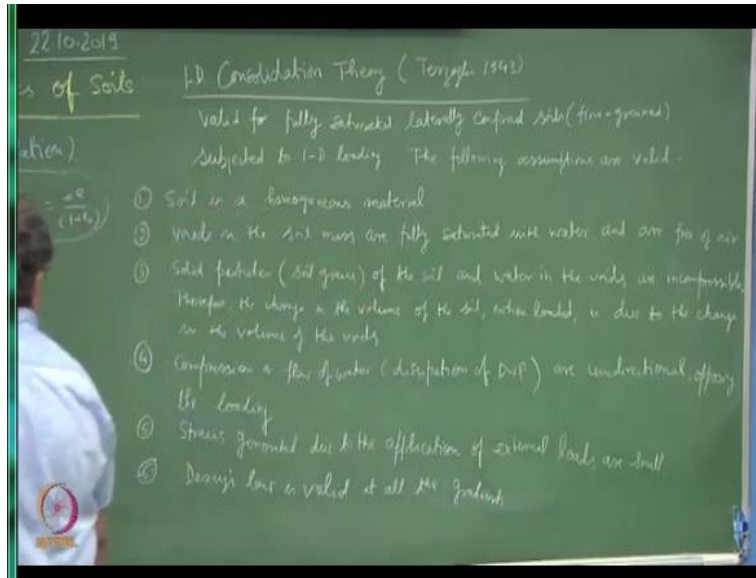 22.10.2019
s of Soils
ation)
1-D Consolidation Theory (Terzaghi 1943)
valid for fully saturated laterally confined soils (fine-grained)
subjected to 1-D loading The following assumptions are valid.
① Soil is a homogeneous material
② voids in the soil mass are fully saturated with water and are free of air
③ Solid particles (soil grains) of the soil and water in the voids are incompressible
Therefore, the change in the volume of the soil, when loaded, is due to the change
in the volume of the voids
④ Compression & flow of water (dissipation of PWP) are unidirectional, opposing
the loading
⑤ Strains generated due to the application of external loads are small
⑥ Darcy's law is valid at all the gradients
NPTEL